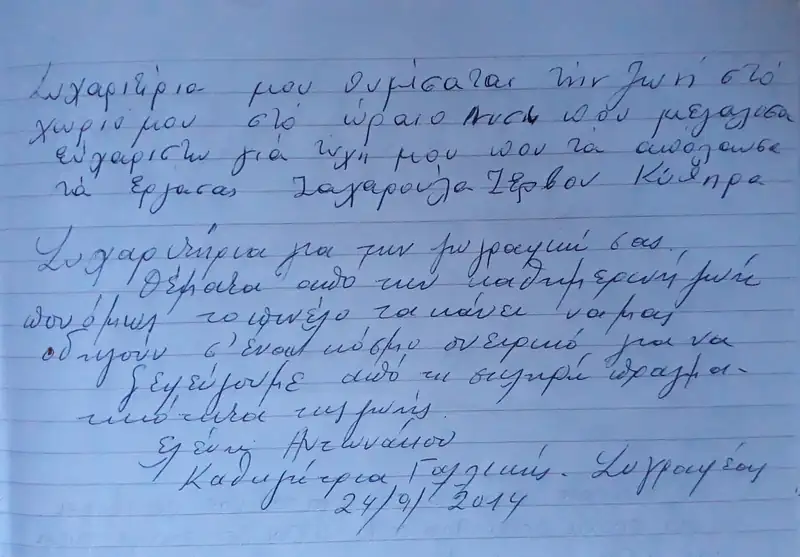 Συχαριτήρια μου θυμίσαται την ζωή στό
χωριο μου στό ώραιο που μεγαλοσα
εύχαριστω γιά τύχη μου που τά απόλαυσα
τά έργασας Ζαχαρούλα Ζερβου Κύπρα
Συχαρητήρια για την ζωγραφική σας.
Θέματα από την καθημερινή ζωή
που όμως το πινέλο τα κάνει να μας
οδηγούν σ' έναν κόσμο ονειρικό για να
ξεφεύγουμε από τη σκληρή πραγμα-
τικότητα της ζωής.
Ελένη Αντωνάκου
Καθηγήτρια Γαλλικής - Συγραφέας
24/9/2014